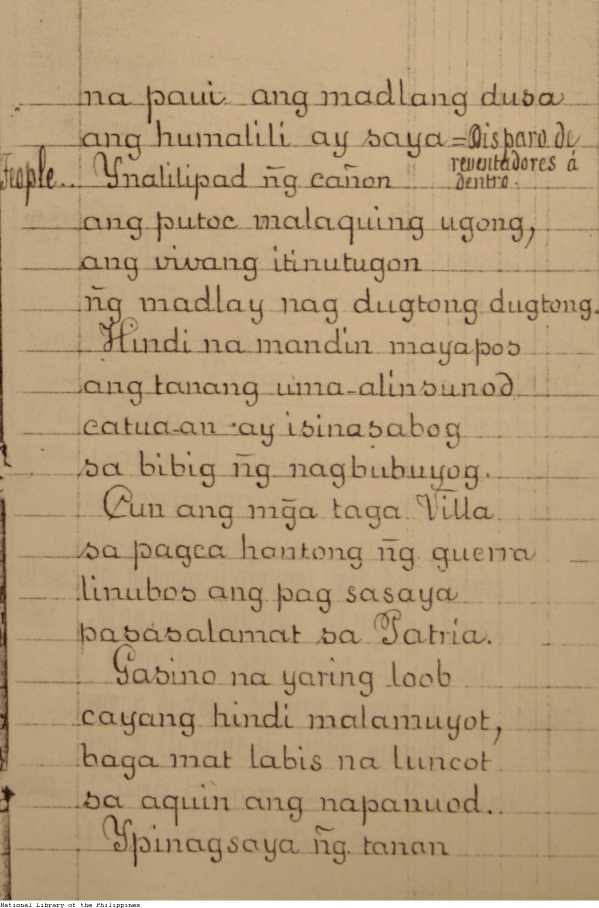 na paui ang madlang dusa
ang humalili ay saya = Disparo de
reventadores á
dentro.
People.. Ynalilipad ng̃ cañon
ang putoc malaquing ugong,
ang vivang itinutugon
ng̃ madlay nag dugtong dugtong.
Hindi na mandin mayapos
ang tanang uma-alinsunod
catua-an ay isinasabog
sa bibig ng̃ nagbubuyog.
Cun ang mg̃a taga Villa
sa pagca hantong ng̃ guerra
linubos ang pag sasaya
pasasalamat sa Patria.
Gasino na yaring loob
cayang hindi malamuyot,
baga mat labis na luncot
sa aquin ang napanuod..
Ypinagsaya ng̃ tanan
National Library of the Philippines